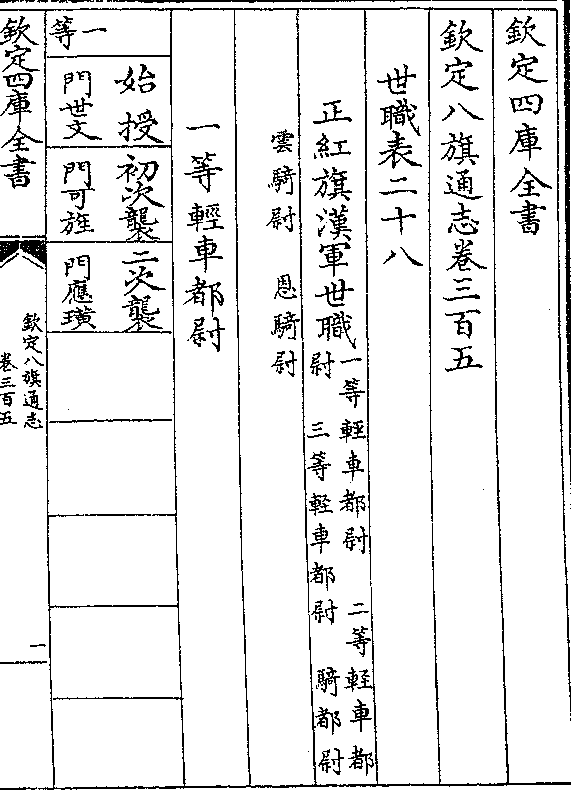 欽定四庫全書
欽定八旗通志卷三百五
世職表二十八
正紅旗漢軍世職一等輕車都尉　二等輕車都
尉　三等輕車都尉　騎都尉
雲騎尉　恩騎尉
一等輕車都尉
始授　初次襲　二次襲
一等　門世文　門可旌　門應璜
欽定四庫全書
欽定八旗通志
卷三百五
一